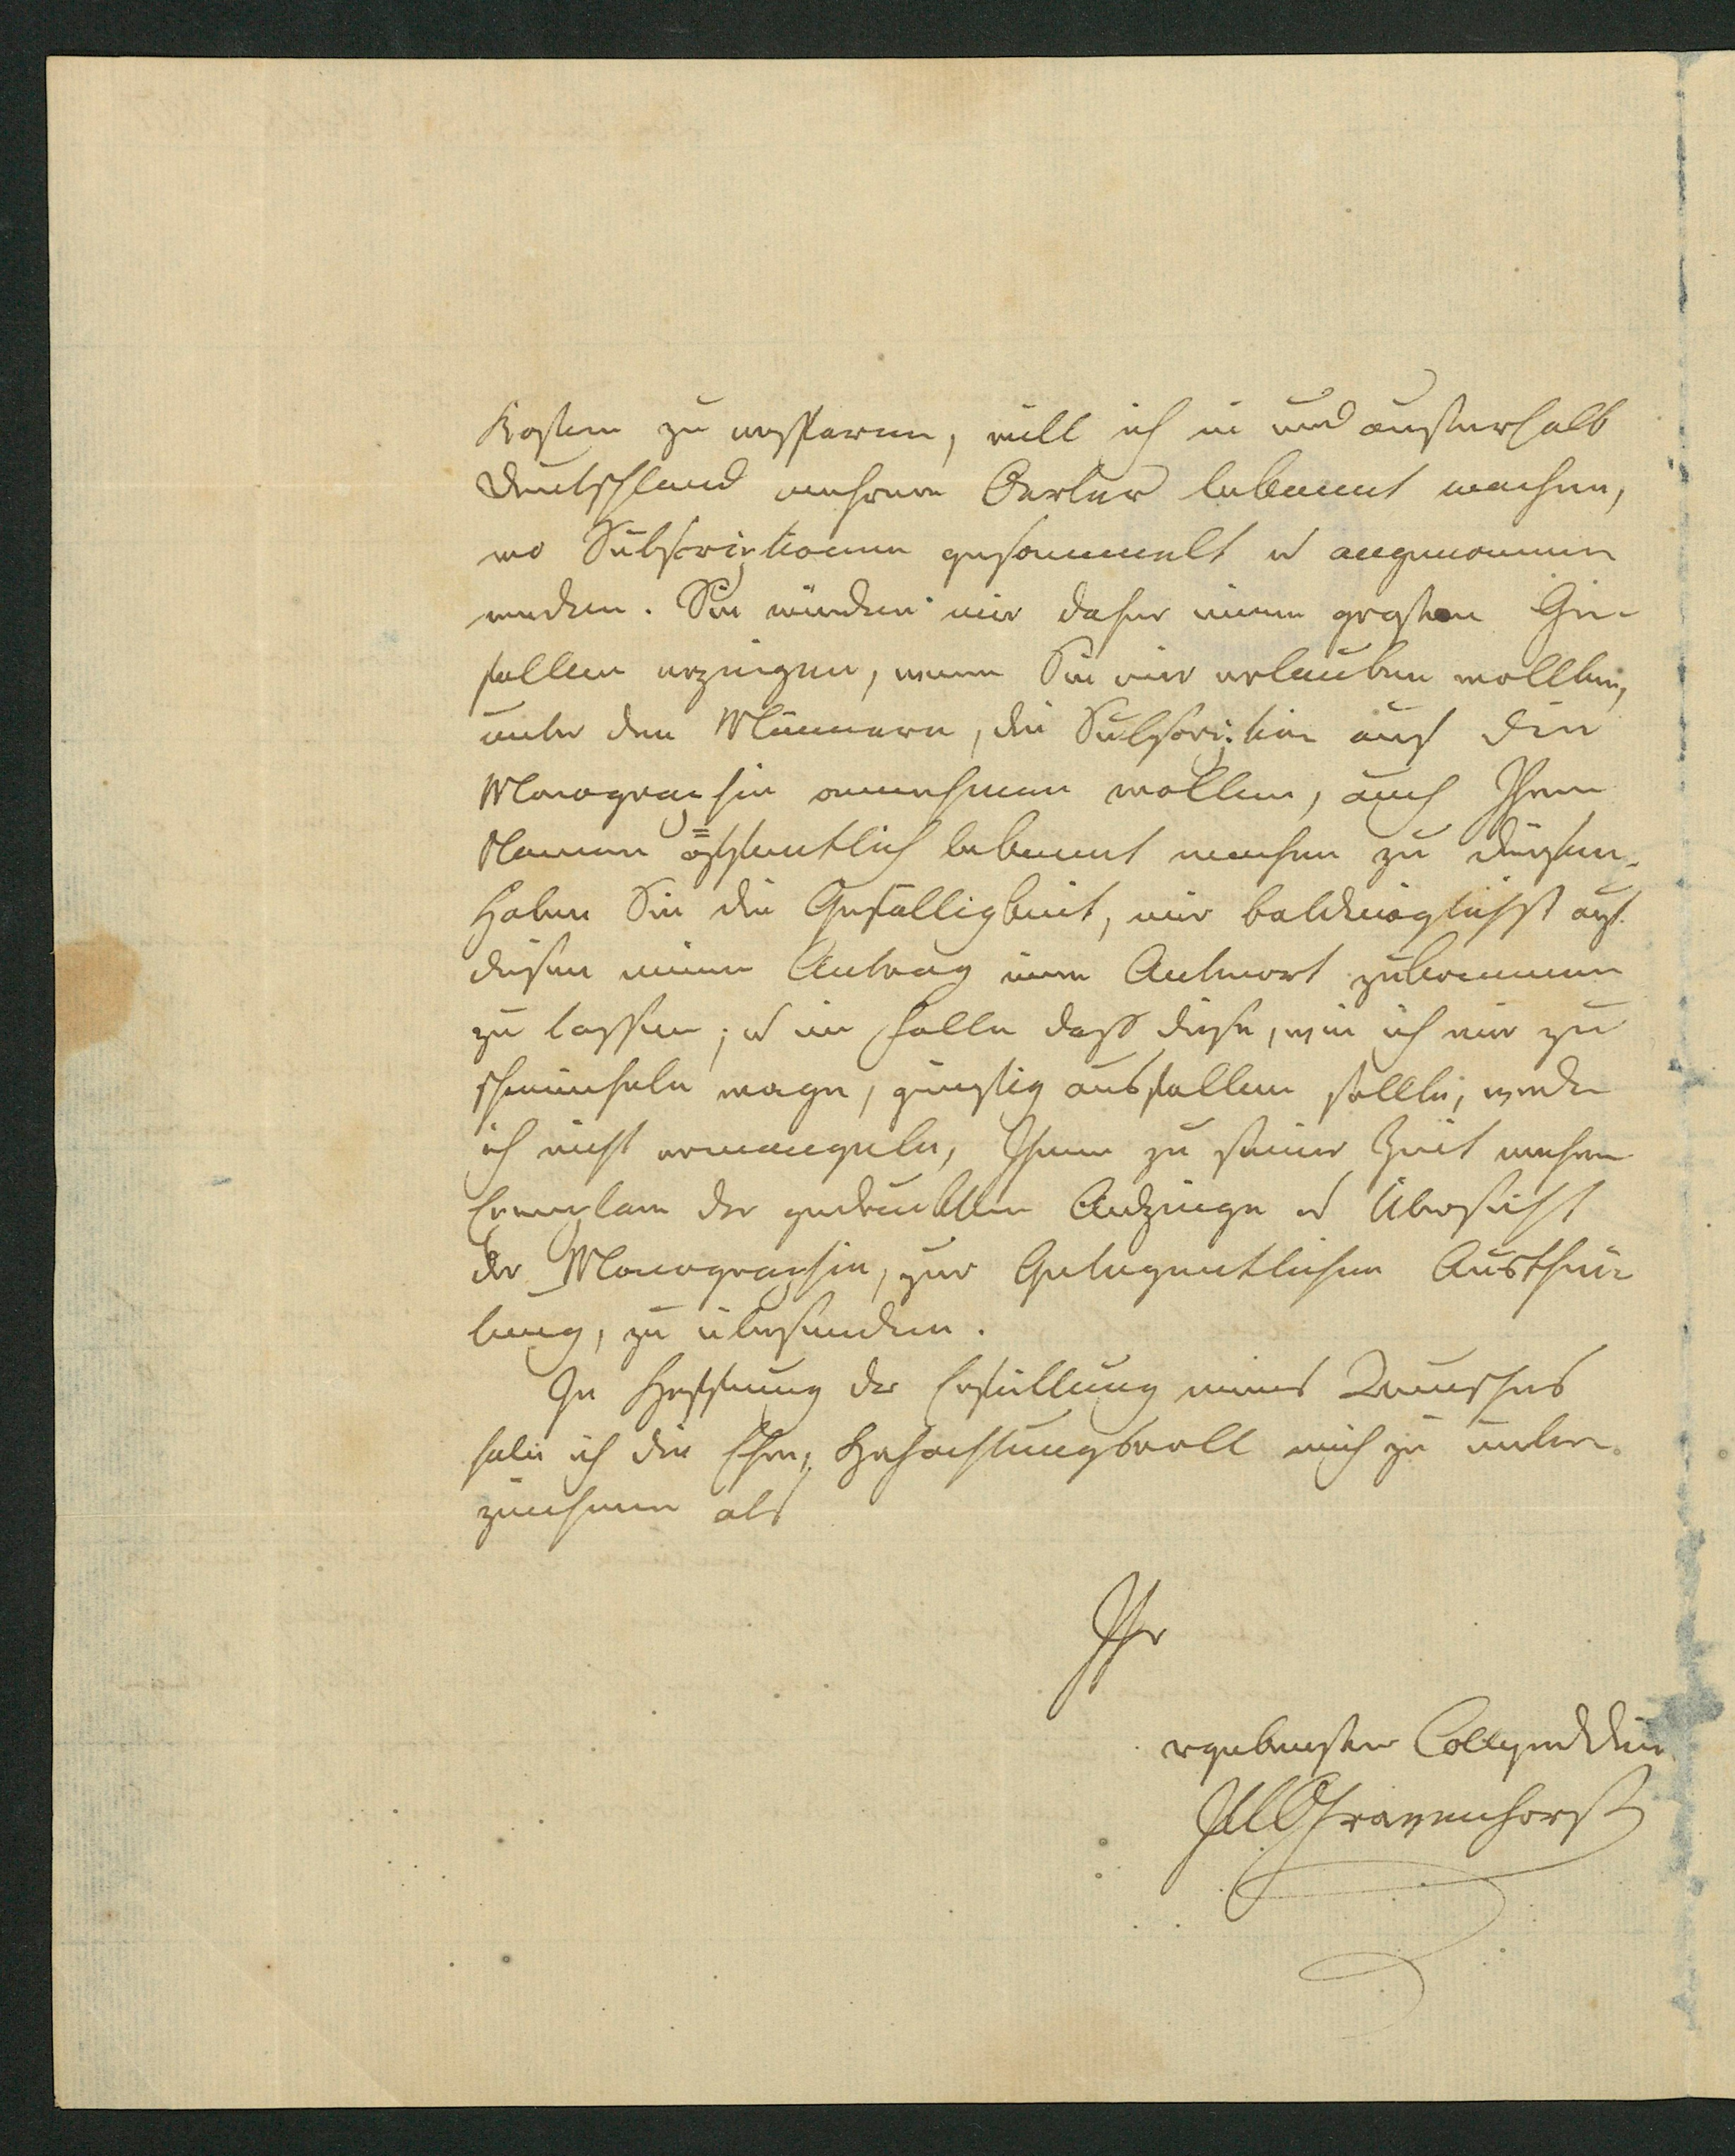 Kosten zu ersparen, will ich in und ausserhalb
Deutschland mehrere Oerter bekannt machen,
wo Subscriptionen gesammelt u angenommen
werden. Sie würden mir daher einen grossen Ge-
fallen erzeigen, wenn Sie mir erlauben wollten,
unter den Männern, die Subscription auf die
Monographie annehmen wollen, auch Ihren
Namen öffentlich bekannt machen zu dürfen.
Haben Sie die Gefälligkeit, mir baldmöglichst auf
diesen meinen Antrag eine Antwort zukommen
zu lassen; u im Falle dass diese, wie ich mir zu
schmeicheln wage, günstig ausfallen sollte, werde
ich nicht ermangeln, Ihnen zu seiner Zeit mehrere
Exemplare der gedruckten Anzeige u Übersicht
der Monographie, zur Gelegentlichen Austhei-
lung, zu übersenden.
In Hoffnung der Erfüllung meines Wunsches
habe ich die Ehre, Hochachtungsvoll mich zu unter-
zeichnen als
Ihr
ergebenster College u Diener
JLC Gravenhorst